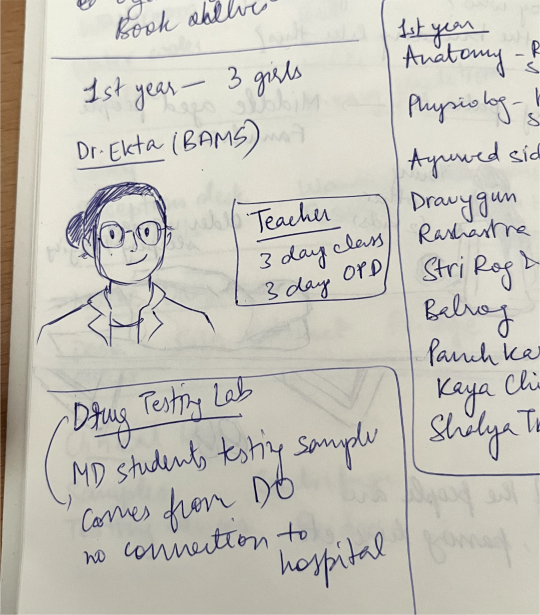 Book
1st year – 3 girls
Dr. Ekta (BAMS)
Teacher
3 day class
3 day OPD
Drug Testing Lab
MD students testing sample
comes from DO
no connection to
hospital
1st year
Anatomy –
Physiolog –
Ayurved sid
Dravygun
Rashastra
Stri Rog
Balrog
Panch Ka
Kaya Chi
Shalya T